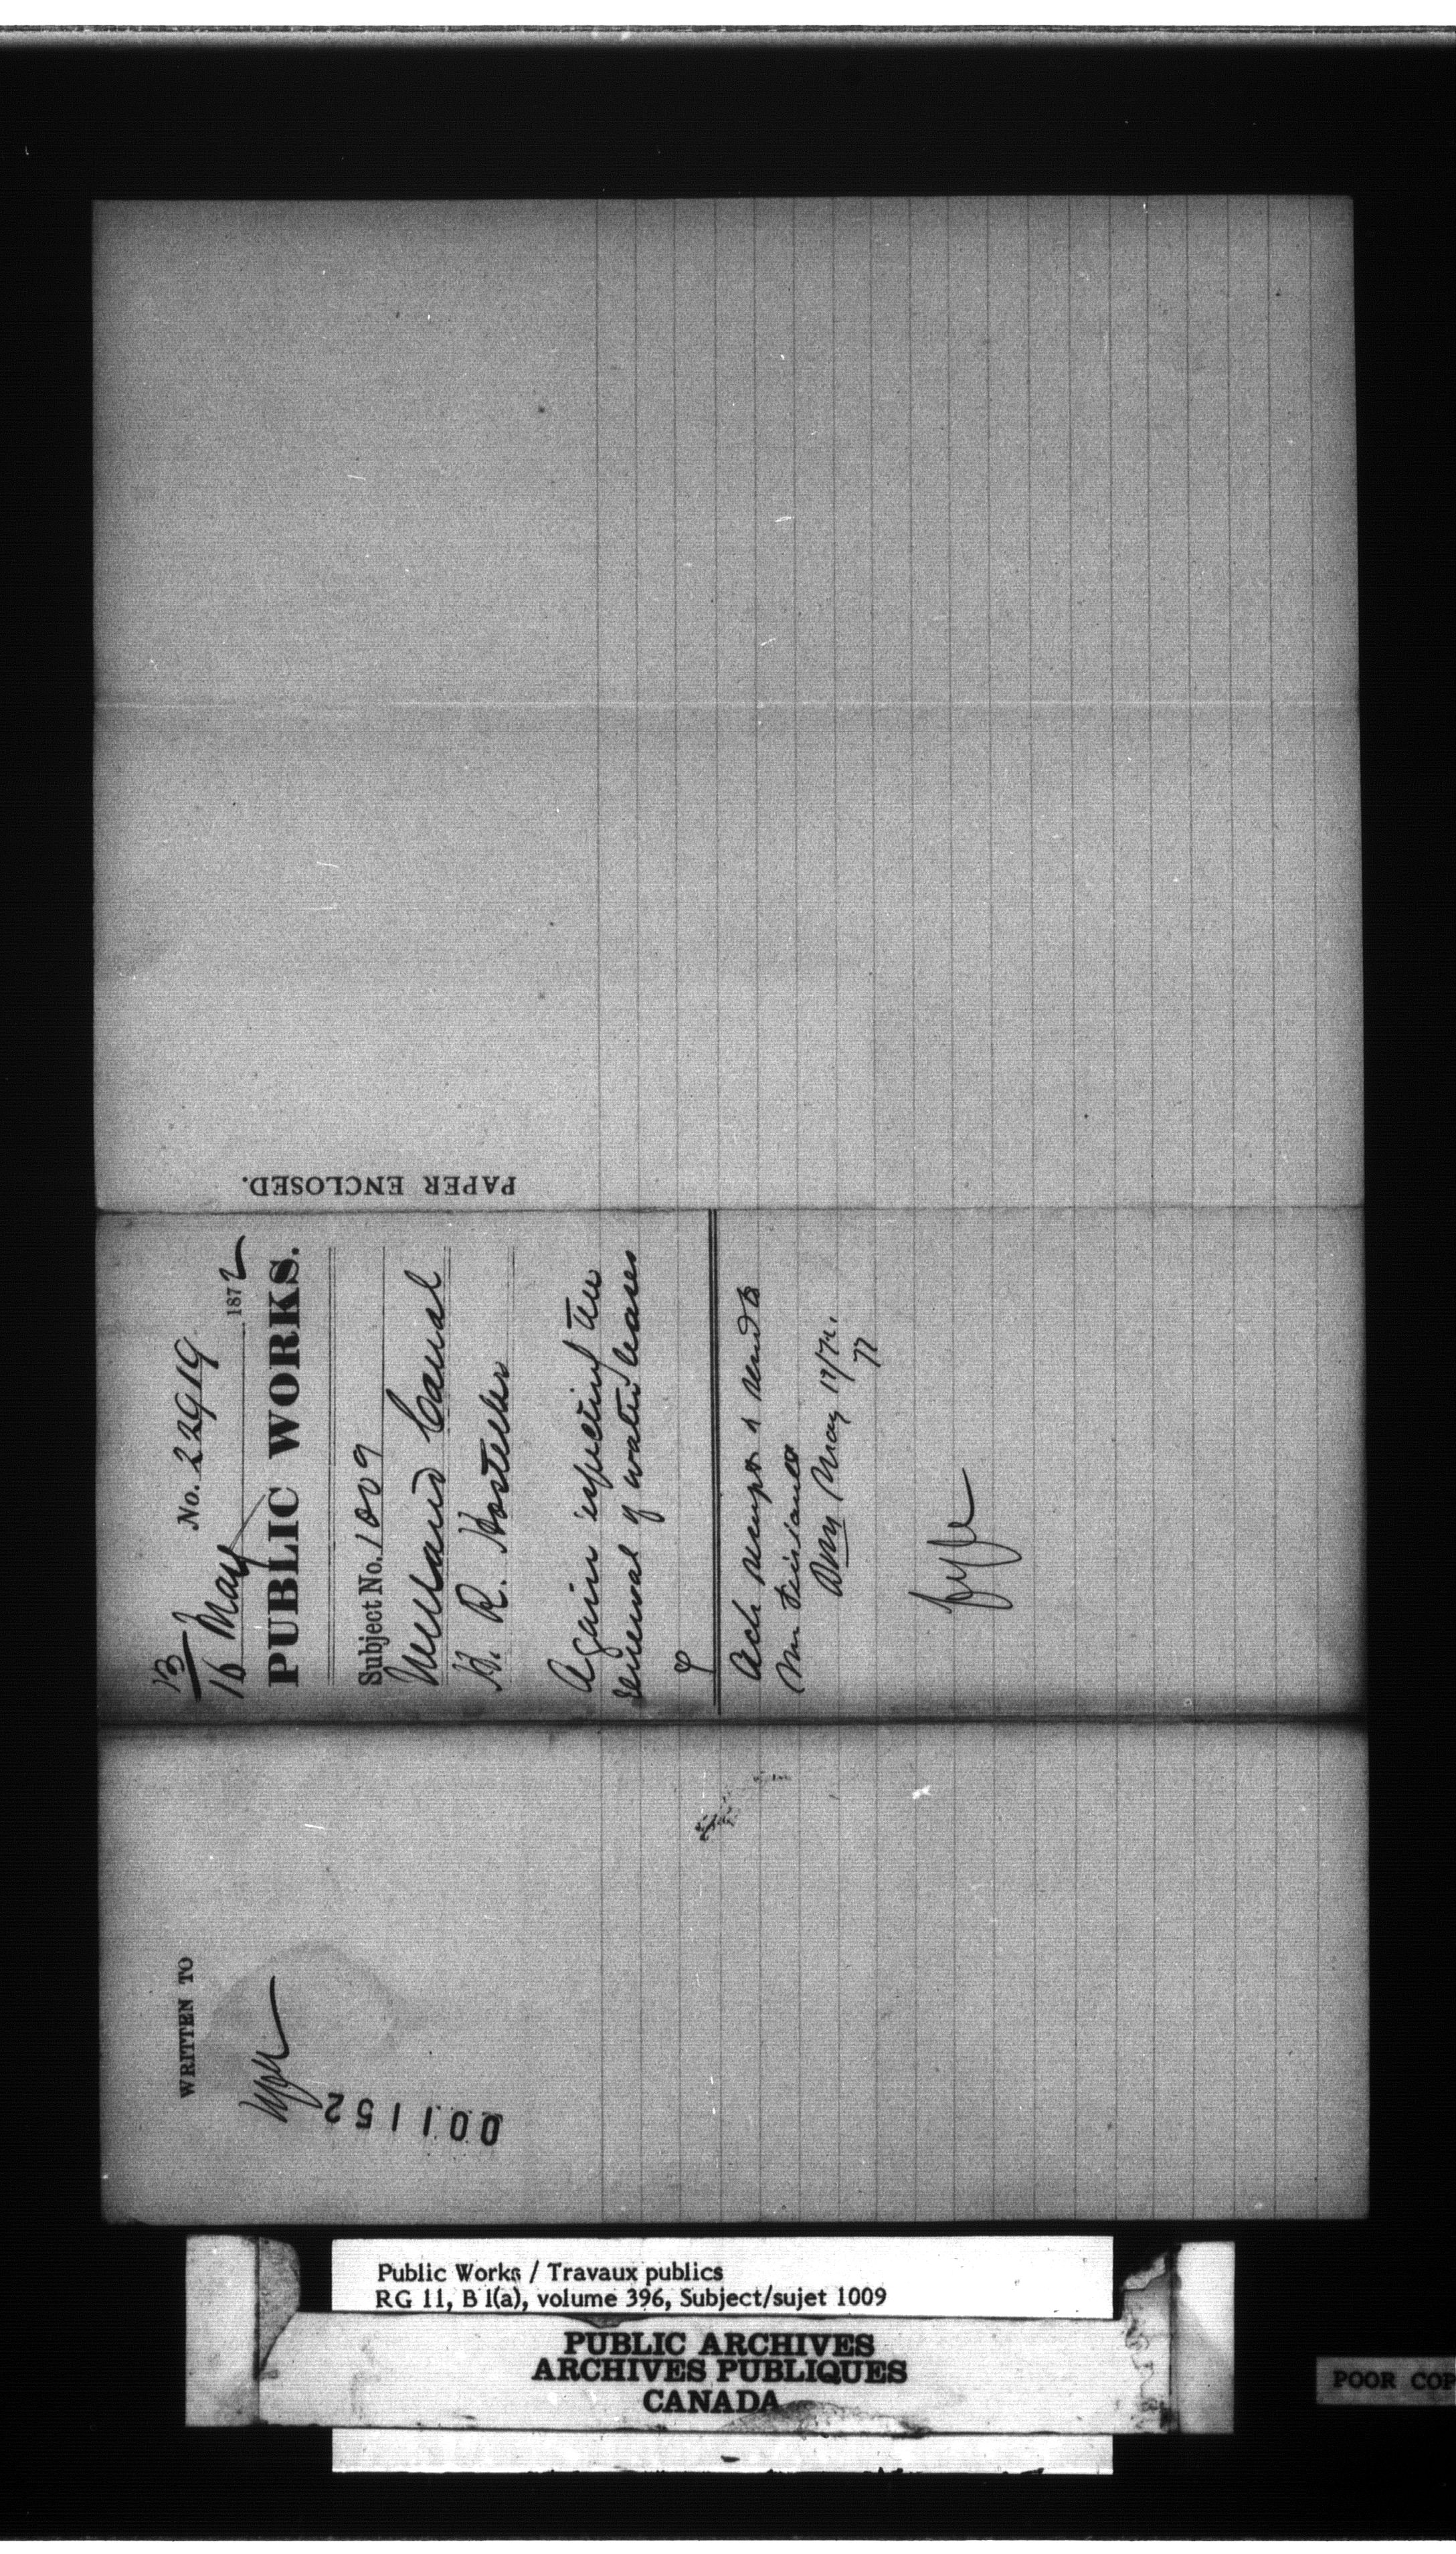 PAPER ENCLOSED.
B
No. 22919
16 May 1872
PUBLIC WORKS.
Subject No. 1009
Welland Canal
H. R. Hostetter
Again respecting the
renewal of water leases
Ack receipt & send to
Mr
May 17/72.
WRITTEN TO
001152
Public Works / Travaux publics
RG 11, B 1(a), volume 396, Subject/sujet 1009
PUBLIC ARCHIVES
ARCHIVES PUBLIQUES
CANADA
POOR COP